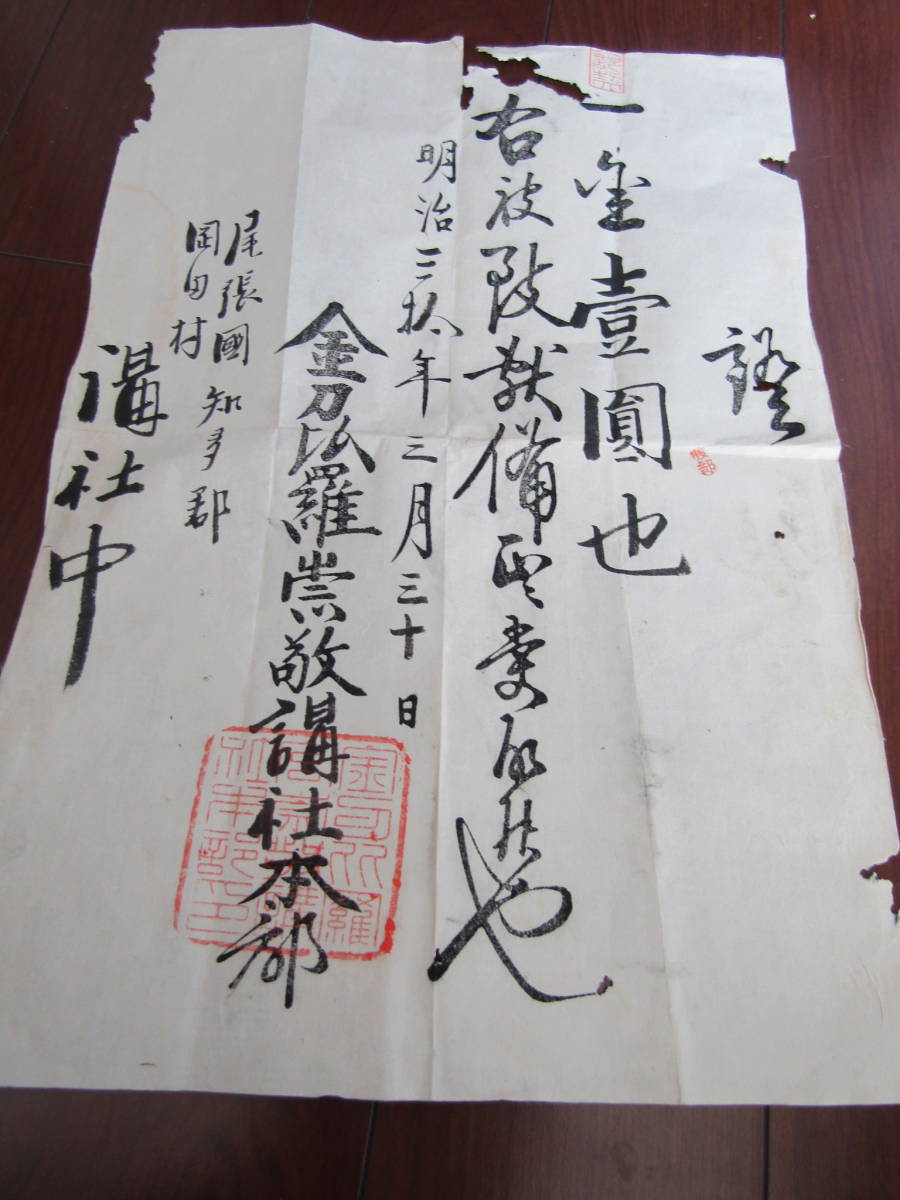 證
一金壹圓也
右被致献備正受納候也
明治三拾八年三月三十日
金刀比羅崇敬講社本部
尾張國知多郡
岡田村
講社中